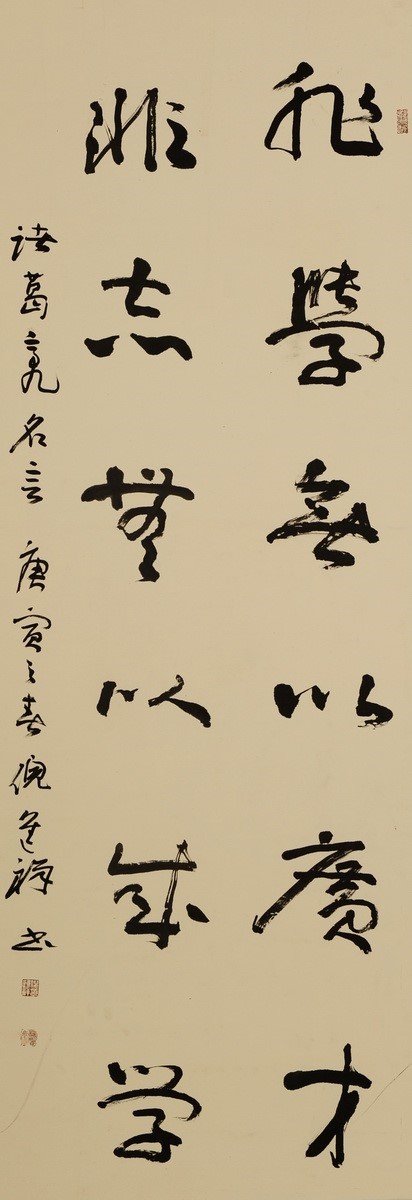 非學無以廣才
非志無以成学
诸葛亮名言 庚寅之春倪進祥书